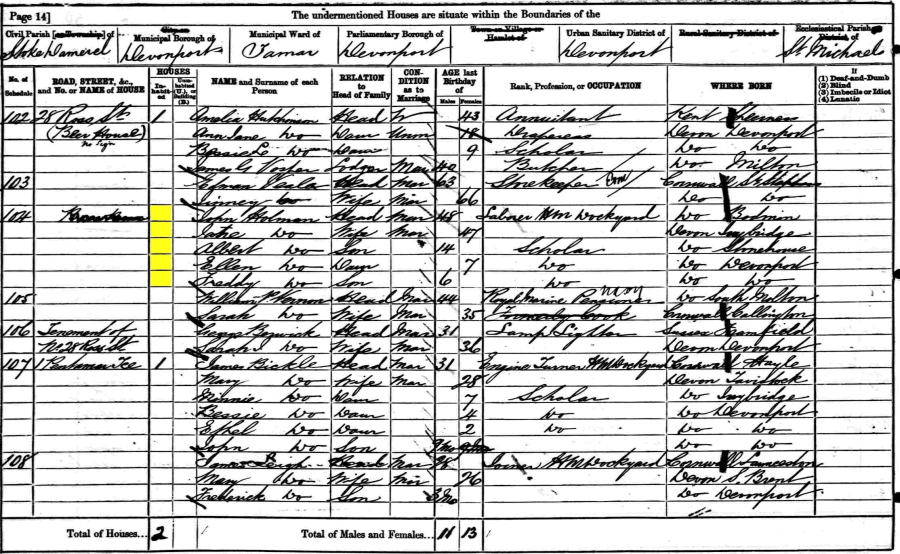 Page 14] The undermentioned Houses are situate within the Boundaries of the
Civil Parish [or Township] of City or Municipal Borough of Municipal Ward of Parliamentary Borough of Town or Village or Hamlet of Urban Sanitary District of Rural Sanitary District of Ecclesiastical Parish or District of
Stoke Damerel Devonport Tamar Devonport Devonport St Michael
No. of Schedule ROAD, STREET, &c., and No. or NAME of HOUSE HOUSES In-habited Uninhabited (U.), or Building (B.) NAME and Surname of each Person RELATION to Head of Family CONDITION as to Marriage AGE last Birthday of Males Females Rank, Profession, or OCCUPATION WHERE BORN If (1) Deaf-and-Dumb (2) Blind (3) Imbecile or Idiot (4) Lunatic
102 28 Ross St 1 Amelia Hutchinson Head W 43 Annuitant Kent Sheerness
(Beer House) Ann Jane Do Daur Unm 18 Draperess Devon Devonport
no Sign Bessie Do Daur 9 Scholar Do Do
James G Vosper Lodger Mar 40 Butcher Do Milton
103 Head Mar 63 Storekeeper Cornwall St Stephens
Do Wife Mar 66 Do Do
104 John Holman Head Mar 48 Laborer HM Dockyard Do Bodmin
Do Wife Mar 47 Devon Ivybridge
Albert Do Son 14 Scholar Do Stonehouse
Ellen Do Daur 7 Do Do Devonport
Freddy Do Son 6 Do Do Do
105 William P Vernon Head Mar 44 Royal Marine Pensioner Do South Molton
Sarah Do Wife Mar 35 Formerly Cook Cornwall Callington
106 Tenement of George Head Mar 31 Lamp Lighter Sussex Framfield
No 28 Ross St Sarah Do Wife Mar 36 Devon Devonport
107 1 Tce 1 James Bickle Head Mar 31 Engine Turner HM Dockyard Cornwall Hayle
Mary Do Wife Mar 28 Devon Tavistock
Minnie Do Daur 7 Scholar Do Ivybridge
Bessie Do Daur 4 Do Do Devonport
Ethel Do Daur 2 Do Do Do
John Do Son 9 Mo Do Do
108 James Leigh Head Mar 28 Joiner HM Dockyard Cornwall Launceston
Mary Do Wife Mar 26 Devon S. Brent
Frederick Do Son 3 Mo Do Devonport
Total of Houses... 2 Total of Males and Females... 11 13